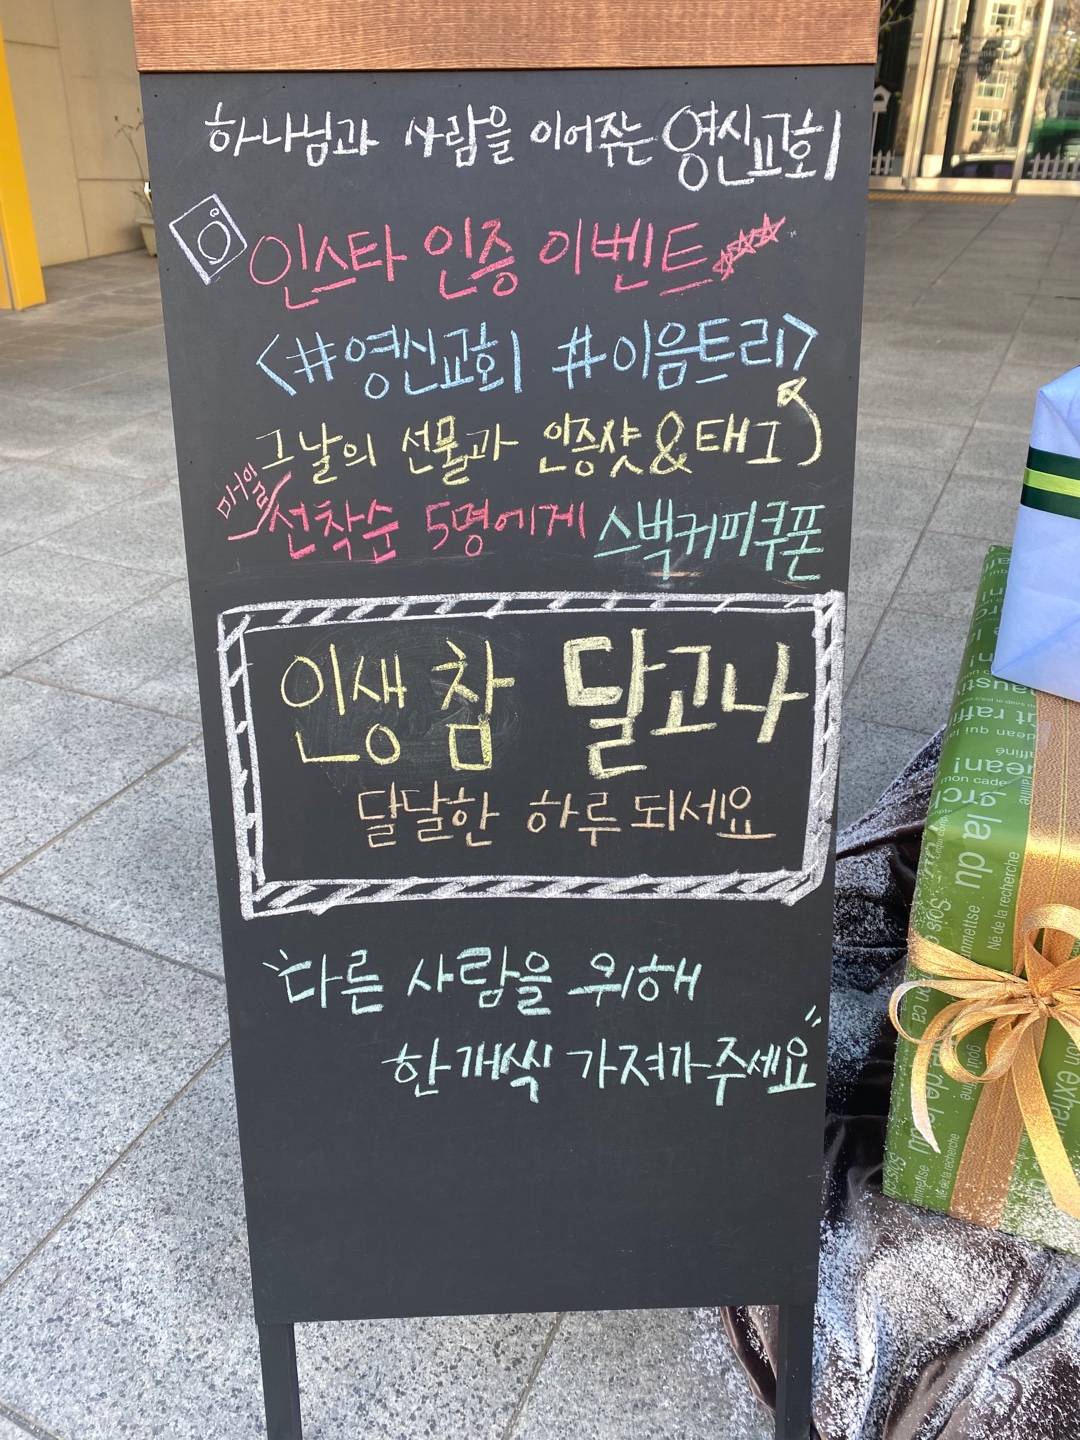 하나님과 사람을 이어주는 영신교회
인스타 인증 이벤트
<#영신교회 #이음트리>
그날의 선물과 인증샷&태그
매일 선착순 5명에게 스벅커피쿠폰
인생 참 달고나
달달한 하루 되세요
"다른 사람을 위해
한개씩 가져가주세요"
la du
mon cade
Né de la recherche
Né de la recherche